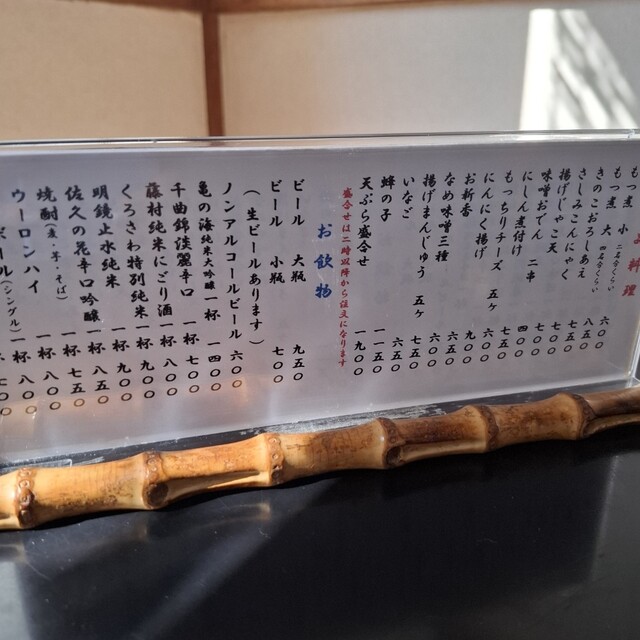 品料理
もつ煮 小 二名分くらい 六〇〇
もつ煮 大 四名分くらい 八五〇
きのこおろしあえ 七五〇
さしみこんにゃく 七〇〇
揚げじゃこ天 七〇〇
味噌おでん 二串 四〇〇
にしん煮付け 五〇〇
もっちりチーズ 五ヶ 七〇〇
にんにく揚げ 九〇〇
お新香 五五〇
なめ味噌三種 六〇〇
揚げまんじゅう 五ヶ 六五〇
いなご 六五〇
蜂の子 一一五〇
天ぷら盛合せ 一九〇〇
盛合せは二時以降から注文になります
お飲物
ビール 大瓶 九五〇
ビール 小瓶 七〇〇
(生ビールあります)
ノンアルコールビール 六〇〇
亀の海純米大吟醸 一杯 一四〇〇
千曲錦淡麗辛口 一杯 七〇〇
藤村純米にごり酒 一杯 八〇〇
くろさわ特別純米 一杯 九〇〇
明鏡止水純米 一杯 九〇〇
佐久の花辛口吟醸 一杯 八五〇
焼酎(麦・芋・そば) 一杯 七五〇
ウーロンハイ 一杯 八〇〇
ボール(シングル)